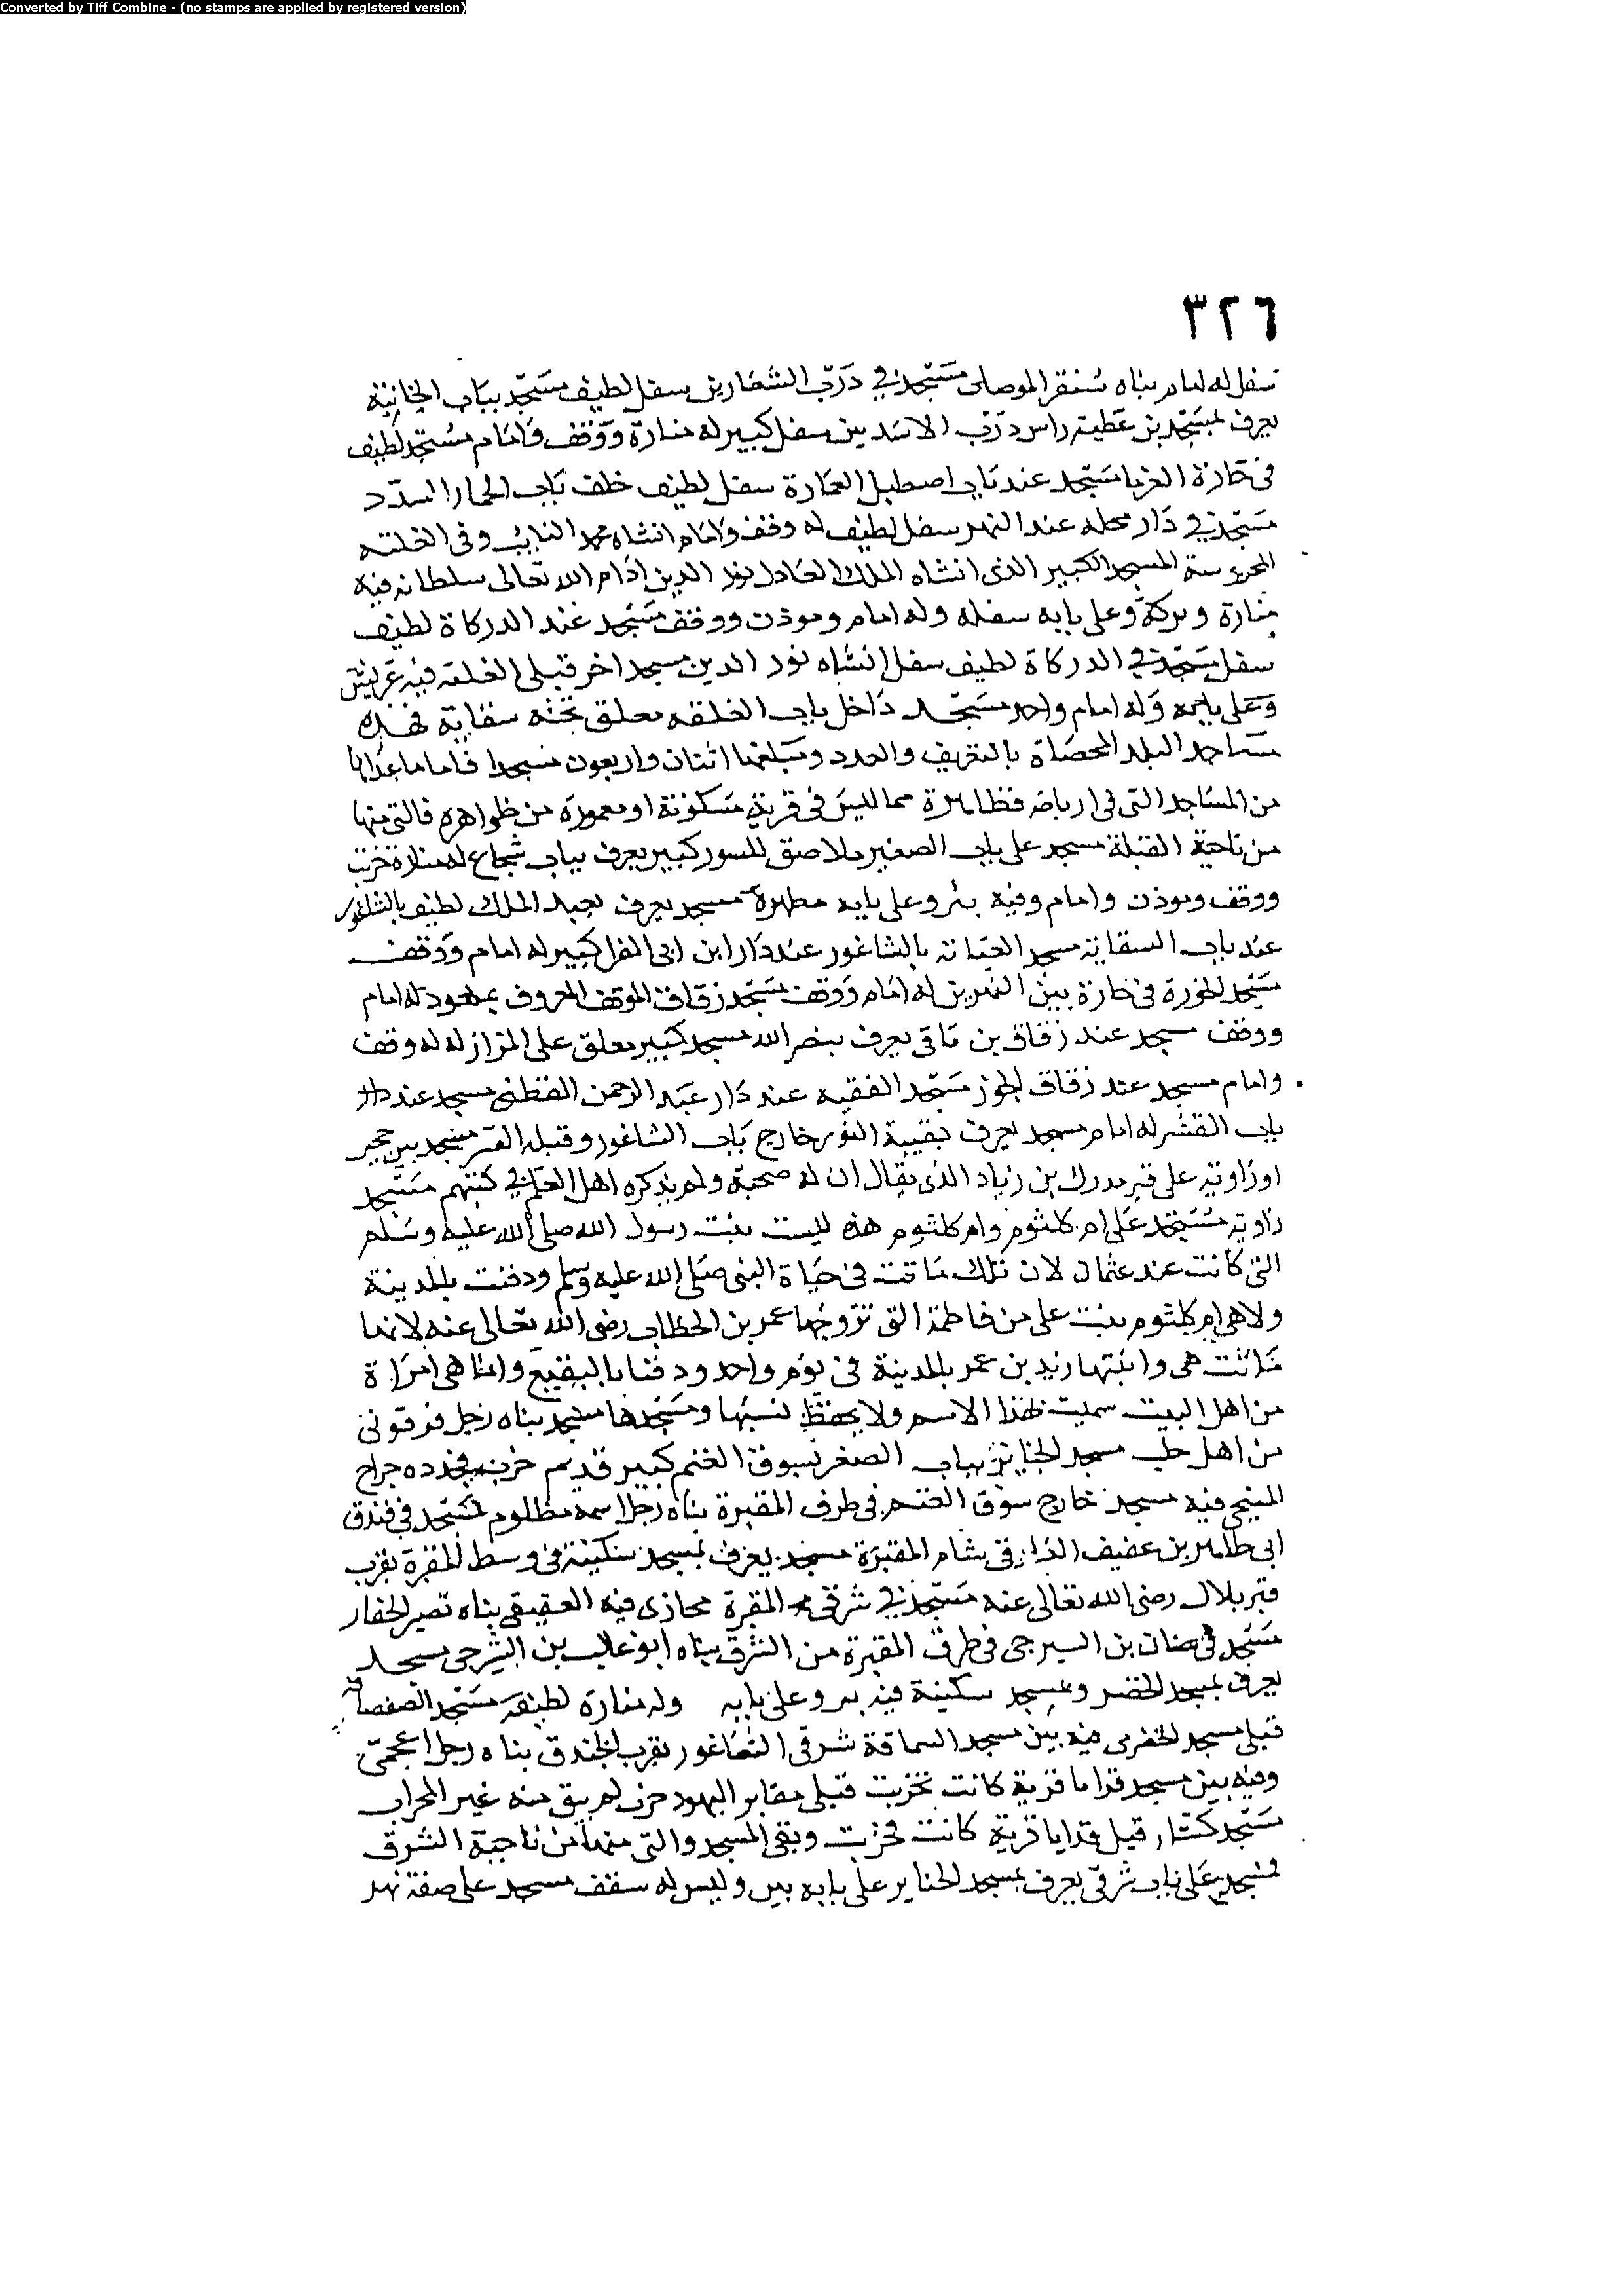 Converted by Tiff Combine - (no stamps are applied by registered version)
٣٢٦
سفل له امام بناه سنقر الموصلى مسجد في درب الشعارين سفل لطيف مسجد بباب الجابية
يعرف بمسجد بن عطية راس درب الاسديين سفل كبير له منارة ووقف وامام مسجد لطيف
في حارة الغربا مسجد عند باب اصطبل العمارة سفل لطيف خلف باب الحمار السدد
مسجد في دار محله عند النهر سفل لطيف له وقف وامام انشاه محمد النايب وفى القلعة
المحروسة المسجد الكبير الذى انشاه الملك العادل نور الدين ادام الله تعالى سلطانه فيه
منارة وبركة وعلى بابه سفله وله امام وموذن ووقف مسجد عند الدركاة لطيف
سفل مسجد في الدركاة لطيف سفل انشاه نور الدين مسجد اخر قبلى القلعة فيه عريش
وعلى بابه وله امام واحد مسجد داخل باب القلعة معلق تحته سقاية فهذه
مساجد البلد المحصاة بالتعريف والعدد ومبلغها اثنان واربعون مسجدا فاما ما عداها
من المساجد التى فى ارباضه فظاهرة مما ليس فى قرية مسكونة او معمورة من ظواهره فالتى منها
من ناحية القبلة مسجد على باب الصغير ملاصق للسور كبير يعرف بباب شجاع له منارة خربت
ووقف وموذن وامام وفيه بئر وعلى بابه مطهرة مسجد يعرف بعبد الملك لطيف بالشاغور
عند باب السقاية مسجد الجبانة بالشاغور عند دار ابن ابى الفرا كبير له امام ووقف
مسجد الخورة في حارة بين النهرين له امام ووقف مسجد زقاق الموقف المعروف بمحمود له امام
ووقف مسجد عند زقاق بن باقى يعرف بنصر الله مسجد كبير معلق على المزاز له له وقف
وامام مسجد عند زقاق الجوز مسجد الفقيه عند دار عبد الرحمن القطنى مسجد عند دار
باب القشر له امام مسجد يعرف بقبيبة النور خارج باب الشاغور وقبله القبر مسجد بين حجر
او زاوية على قبر مدرك بن زياد الذى يقال ان له صحبة ولم يذكره اهل العلم في كتبهم مسجد
زاوية مسجد على ام كلثوم وام كلثوم هذه ليست بنت رسول الله صلى الله عليه وسلم
التى كانت عند عثمان لان تلك ماتت فى حياة النبى صلى الله عليه وسلم ودفنت بالمدينة
ولا هى ام كلثوم بنت على من فاطمة التى تزوجها عمر بن الخطاب رضى الله تعالى عنه لانها
ماتت هى وابنها زيد بن عمر بالمدينة فى يوم واحد ودفنا بالبقيع وانما هى امراة
من اهل البيت سميت بهذا الاسم ولا يحفظ نسبها ومسجدها مسجد بناه رجل فرقونى
من اهل حلب مسجد الجنايز بباب الصغير بسوق الغنم كبير قديم خرب فجدده جراح
المنيحى فيه مسجد خارج سوق الغنم فى طرف المقبرة بناه رجل اسمه مظلوم مسجد فى فندق
ابى طاهر بن عفيف الدار فى شام المقبرة مسجد يعرف بمسجد سكينة فى وسط المقبرة بقرب
قبر بلال رضى الله تعالى عنه مسجد في شرقى المقبرة محاذى فيه العقيقى بناه نصير الحفار
مسجد فى ضان بن السيرجى فى طرف المقبرة من الشرق بناه ابو غالب بن الشيرجى مسجد
يعرف بمسجد الخضر ومسجد سكينة فيه بير وعلى بابه وله منارة لطيفة مسجد الصفصافة
قبلى مسجد الخضر فيه بين مسجد السماقة شرقى الشاغور بقرب الخندق بناه رجل اعجمى
وفيه بين مسجد قراما قرية كانت تخربت قبلى مقابر اليهود خرب لم يبق منه غير المحراب
مسجد كشار قيل قدايا قرية كانت فخربت وبقى المسجد والتى منها من ناحية الشرق
مسجد على باب شرقى يعرف بمسجد الجنايز على بابه بير وليس له سقف مسجد على صفة نهر